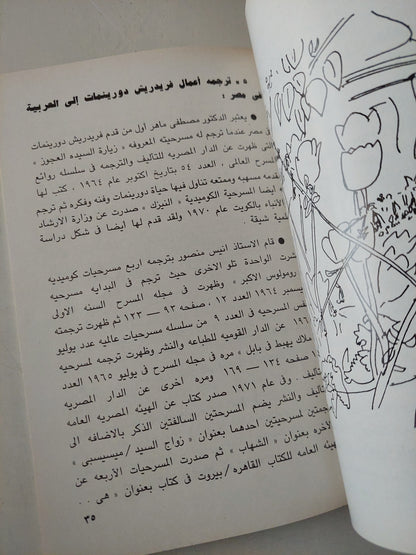 * * ترجمه أعمال فريدريش دورينمات إلى العربية
فى مصر :
● يعتبر الدكتور مصطفى ماهر أول من قدم فريدريش دورينمات
فى مصر عندما ترجم له مسرحيته المعروفه « زيارة السيده العجوز »
التى ظهرت عن الدار المصريه للتأليف والترجمه فى سلسله روائع
المسرح العالمى ، العدد ٥٤ بتاريخ أكتوبر عام ١٩٦٤ ، كتب لها
مقدمه مسهبه وممتعه تناول فيها حياة دورينمات وفنه وفكره ثم ترجم
ايضا المسرحية الكوميدية « النيزك » صدرت عن وزارة الارشاد
الأنباء بالكويت عام ١٩٧٠ ولقد قدم لها ايضا فى شكل دراسة
شيقة
● قام الاستاذ انيس منصور بترجمه اربع مسرحيات كوميديه
الواحدة تلو الاخرى حيث ترجم فى البدايه مسرحيه
رومولوس الاكبر » وظهرت فى مجله المسرح السنه الاولى
١٩٦٤ العدد ١٢ ، صفحه ٩٣ — ١٢٣ ثم ظهرت ترجمته
المسرحيه فى العدد ٩ من سلسله مسرحيات عالميه عدد يوليو
عن الدار القوميه للطباعه والنشر وظهرت ترجمته لمسرحيه
يهبط فى بابل » مره فى مجله المسرح فى يوليو ١٩٦٥ العدد
صفحه ١٣٤ — ١٦٩ ومره اخرى عن الدار المصريه
. وفى عام ١٩٧١ صدر كتاب عن الهيئه المصريه العامه
والنشر يضم المسرحتين السالفتين الذكر بالاضافه الى
لمسرحيتين احدهما بعنوان « زواج السيد / ميسيسبى »
بعنوان « الشهاب » ثم صدرت المسرحيات الاربعه عن
العامه للكتاب القاهره / بيروت فى كتاب بعنوان « هى . .
٣٥